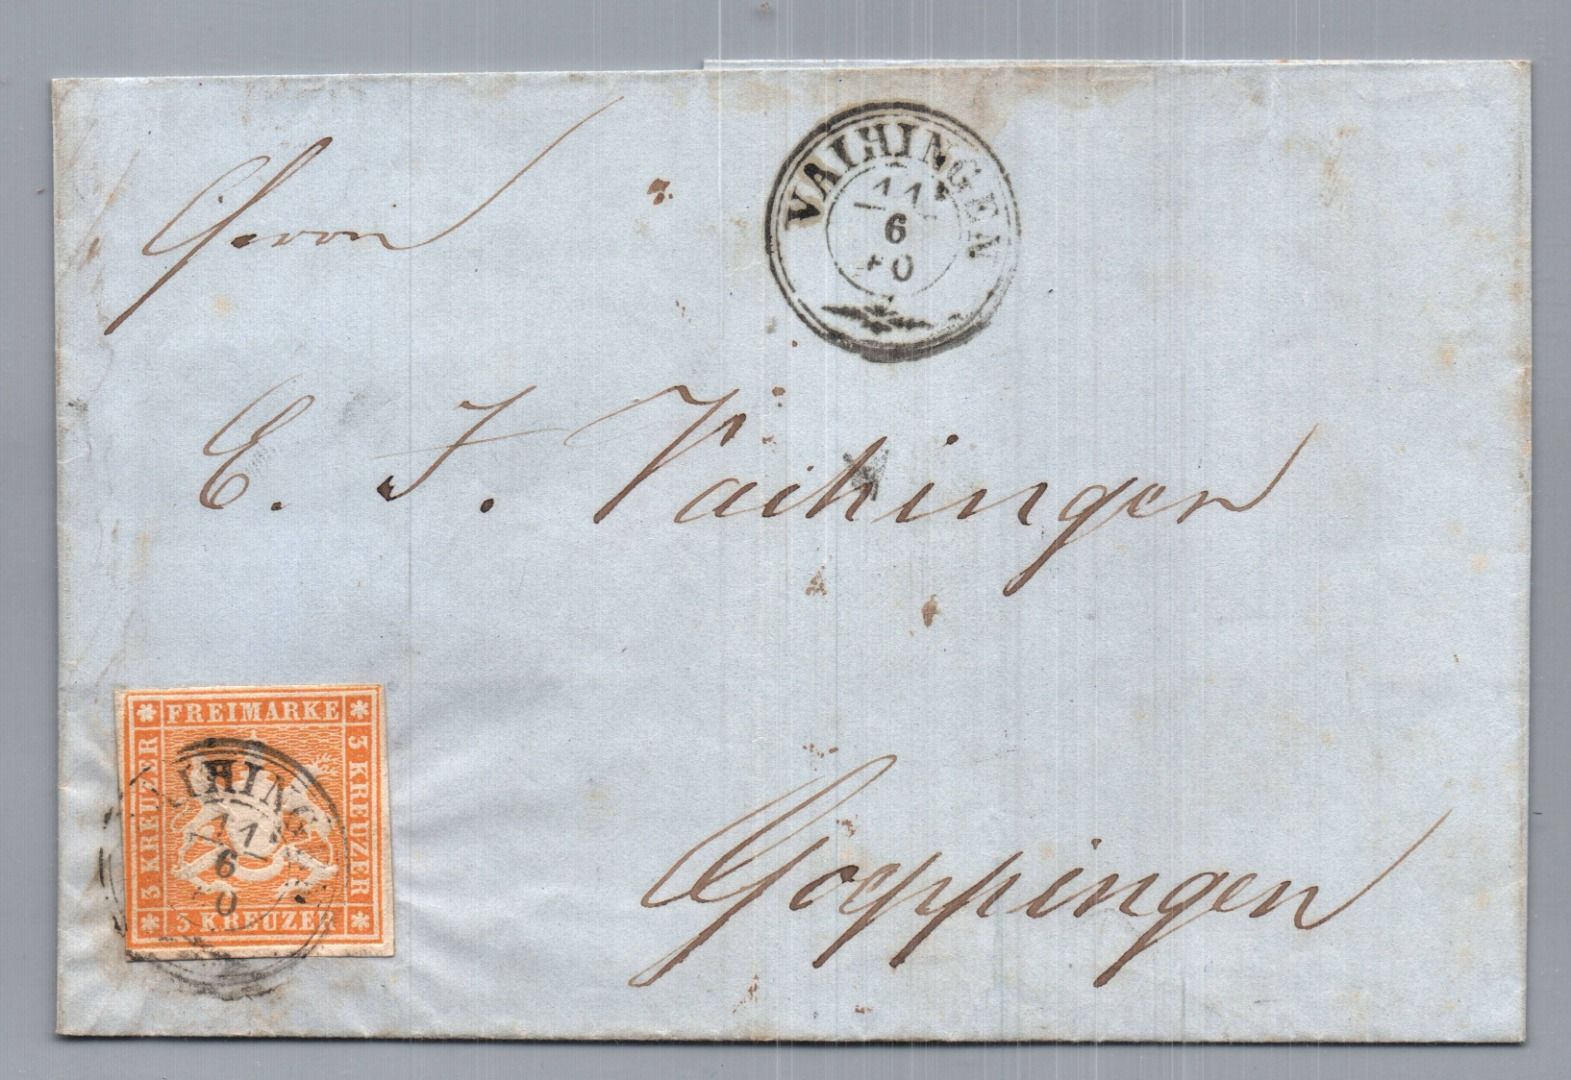 Herrn
VAIHINGEN
11
6
0
E. F. Vaihinger
FREIMARKE
3 KREUZER
3 KREUZER
3 KREUZER
AIHING
11
6
0
Goeppingen